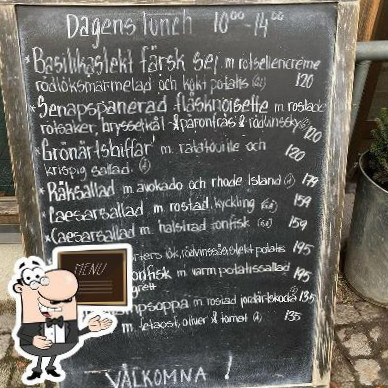 Dagens lunch 10⁰⁰-14⁰⁰
* Basilikastekt färsk sej m rotsellericréme
rödlöksmarmelad och kokt potatis (GL) 120
* Senapspanerad fläsknoisette m rostade
rotsaker, brysselkål & päronfräs & rödvinssky 120
* Grönärtsbiffar m. ratatouille och 120
krispig sallad
* Räksallad m. avokado och rhode Island 179
* Caesarsallad m. rostad kyckling 159
* Caesarsallad m. halstrad tonfisk 159
lök, rödvinssås, stekt potatis 195
tonfisk m varm potatissallad 195
soppa m rostad jordärtskocka 135
m. fetaost, oliver & tomat 135
MENU
VÄLKOMNA !